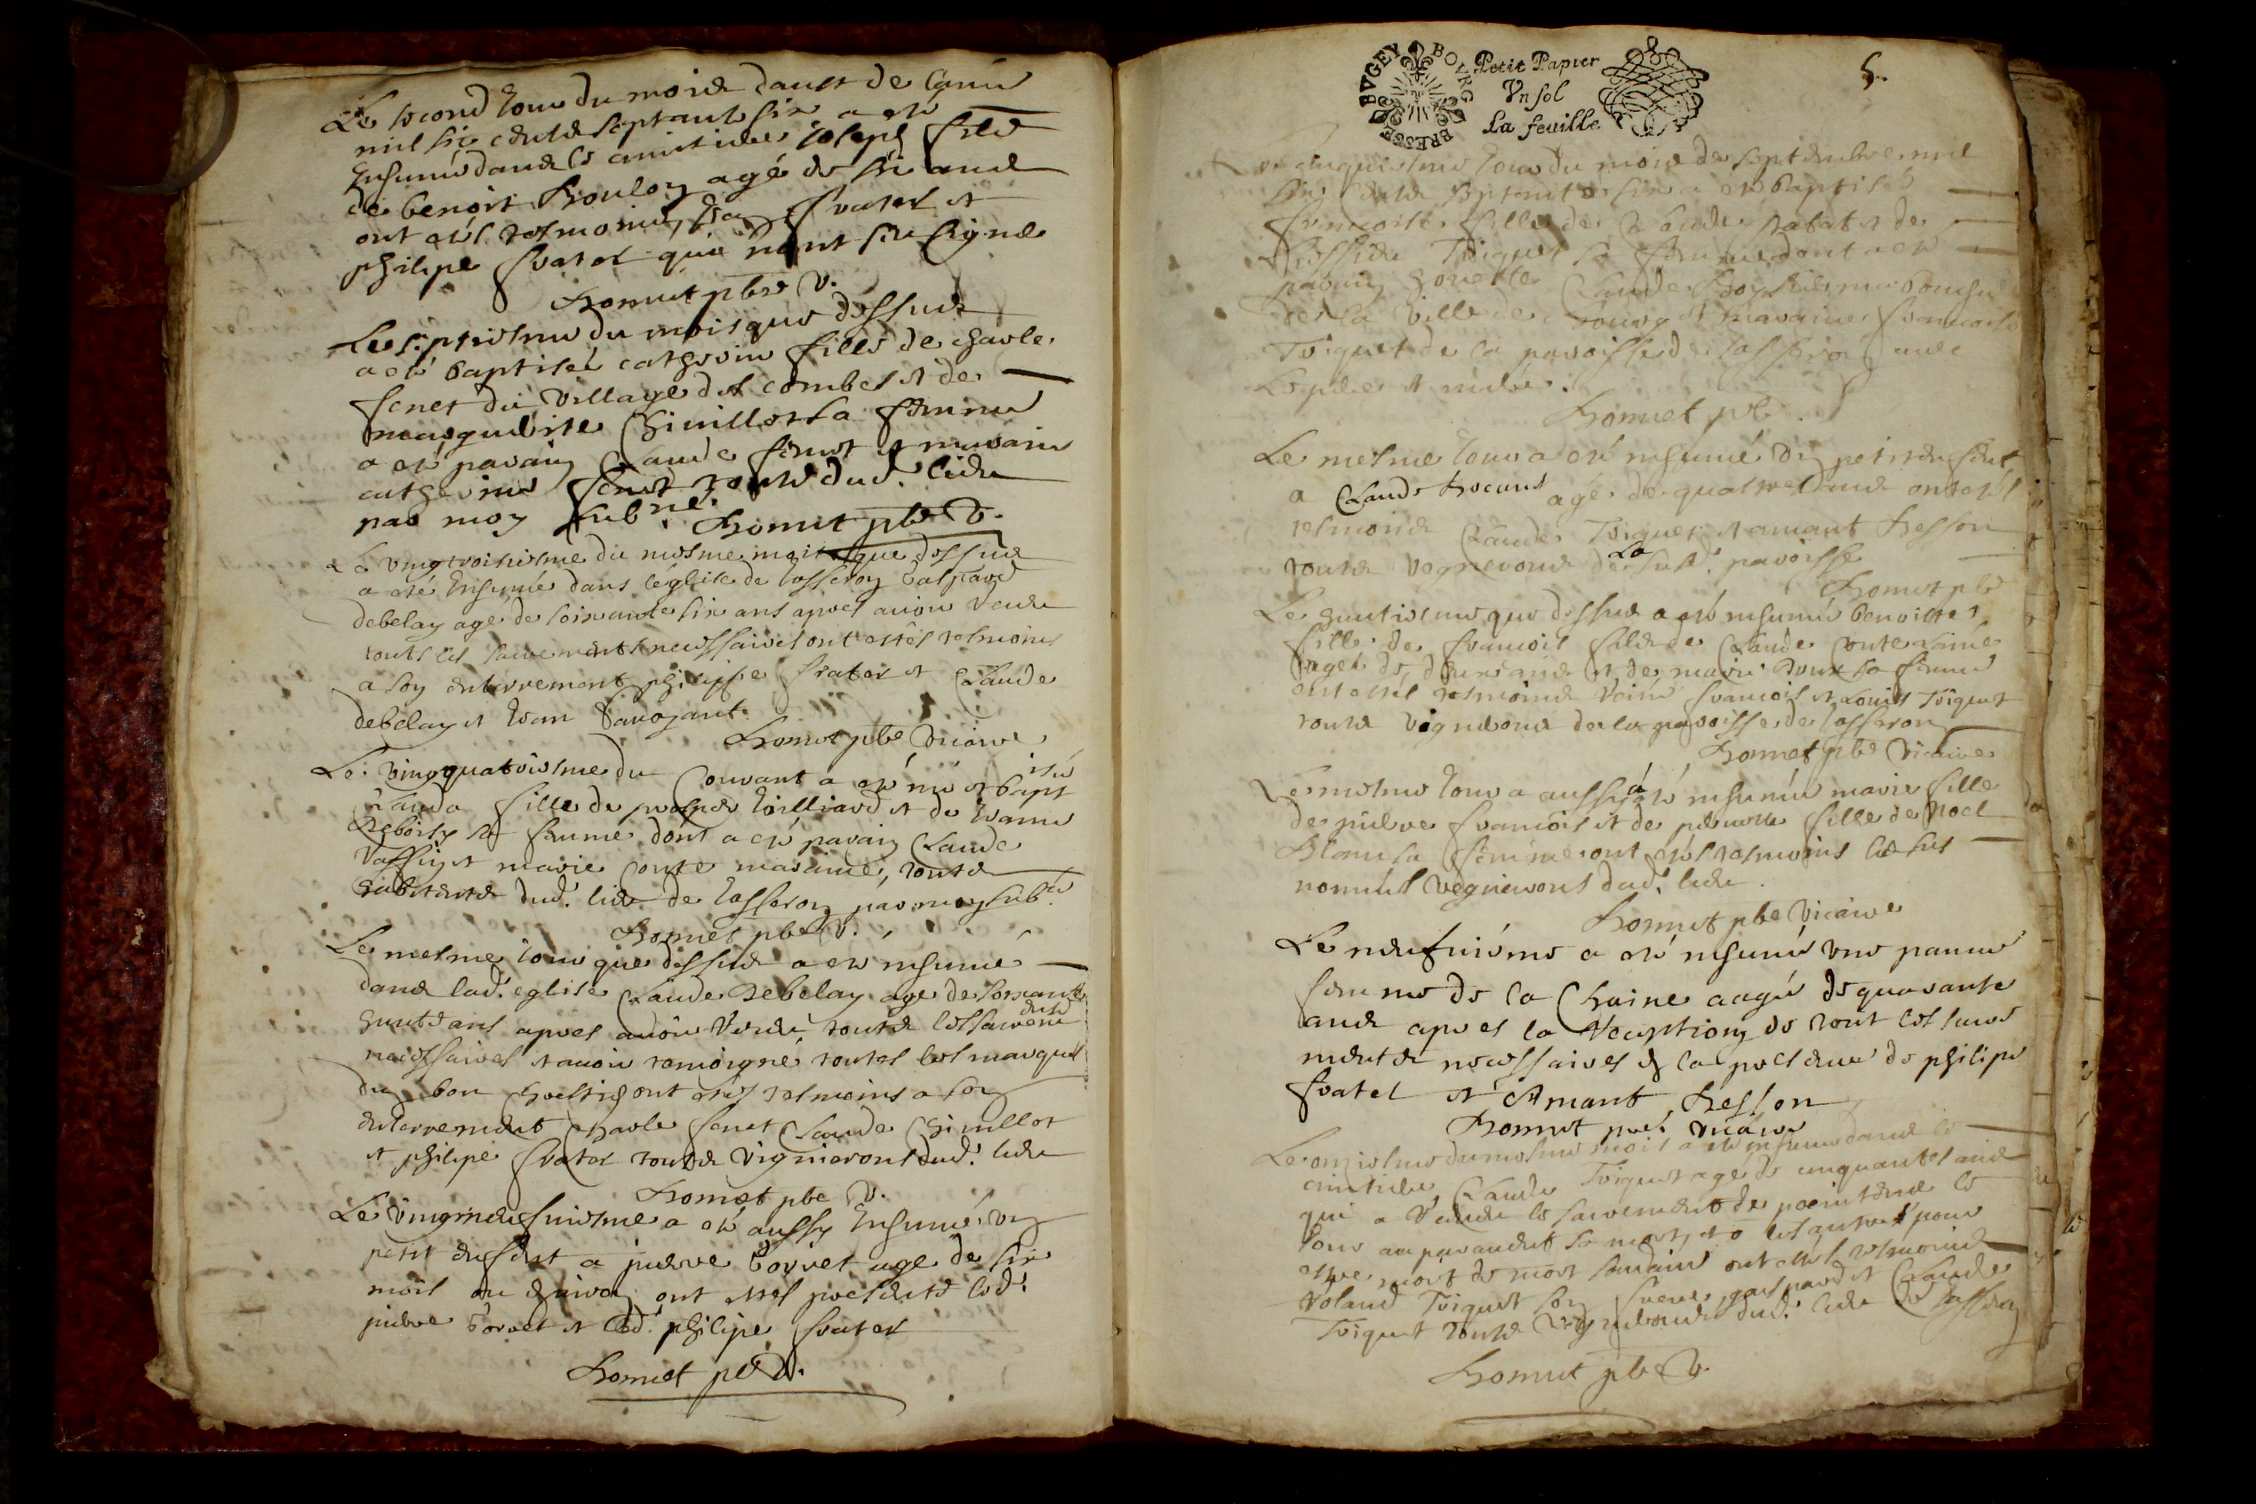 Le second jour du mois daust de lannee
mil six cents septante six a este
Inhumé dans le cimitiere Joseph fils
de benoit Roulon agé de six ans
ont estés tesmoins fratel et
philipe fratel qui nont sceu signer
Homet pbre v.
Le septiesme du mois que dessus
a esté baptiséé catherine fille de charle
fenet du village des combes et de
marguerite Chivillot sa femme
a esté parain Claude fenet et maraine
catherine fenet touts dud. lieu
par moy subné. Homet pbre v.
Le vingtroisiesme du mesme mois que dessus
a esté Inhumée dans léglise de Josseron Gaspard
debelay agé de soixante six ans apres avoir receu
touts les sacrements necessaires ont estés tesmoins
a son enterrement philippe fratel et Claude
debelay et Jean Savoyant.
Homet pbre vicaire
Le vingquatriesme du Courant a esté née et bapt
isée
Clauda fille de Joilliard et de Jeanne
sa femme dont a esté parain Claude
Vassin et marie Conte maraine, touts
habitants dud. lieu de Josseron par moy subné.
Homet pbre v.
Le mesme jour que dessus a esté inhumé
dans lad. eglise Claude Debelay agé de soixante
huit ans apres avoir receu touts les sacrem
ents
necessaires et avoir temoigné toutes les marques
du bon chrestien ont estés tesmoins a son
enterrement charle fenet Claude Chivillot
et philipe fratel touts vignierons dud. lieu
Homet pbre v.
Le vingneufuiesme a esté aussy Inhumé un
petit enfant a pierre Borret agé de six
mois ou environ ont estés presents led.
pierre Borret et led. philipe fratel
Homet pbre v.
BVGEY BOURG BRESSE
Petit Papier
Vn sol
La feuille
5.
Le cinquiesme jour du mois de septembre mil
six cents septante six a esté baptisée
francoise fille de Claude et de
Triquet sa femme dont a esté
parain honeste Claude
de la ville de bourg et maraine francoise
Triquet de la paroisse de Josseron avec
le pere et mere.
Homet pbre
Le mesme jour a esté inhumé un petit enfant
a Claude agé de quatre ans ont estés
tesmoins Claude Triquet et amant Besson
touts vignerons de la susd. paroisse
Homet pbre
Le huitiesme que dessus a esté inhumée benoitte
fille de francois fils de Claude Conte
agée de deux ans et de marie Roux sa femme
ont estés tesmoins francois et Louis Triquet
touts vignerons de la paroisse de Josseron
Homet pbre vicaire
Le mesme jour a aussi esté inhumée marie fille
de pierre francois et de pernette fille de Noel
sa femme ont estés tesmoins les sus
nommés vignierons dud. lieu.
Homet pbre vicaire
Le neufuiéme a esté inhumée une pauure
femme de la Chaine aagée de quarante
ans apres la reception de tout les sacre
ments necessaires en la presence de philipe
fratel et Amant Besson
Homet pbre vicaire
Le onziesme du mesme mois a esté inhumé dans le
cimitiere Claude Triquet agé de cinquantes ans
qui a receu le sacrement de penitence le
jour auparavant sa mort, et les autres pour
estre mort de mort soudaine ont estés tesmoins
Roland Triquet son frere, gaspard et Claude
Triquet touts vignerons dud. lieu de Josseron
Homet pbre v.